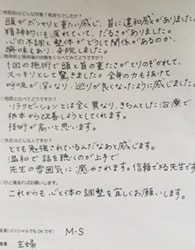 頭がボンヤリと重たい感じ、首に違和感がありました。
精神的にも疲れていて、だるさがありました。
心の不調と整体がどうして関係があるのか、
興味があり、来院しました。
1回の施術で頭と首の重たさがとりのぞかれて、
スッキリとして驚きました。全身の力も抜けて
呼吸が深くなり、巡りが良くなったように感じました。
リラクゼーションとは全く異なり、きちんとした治療で
根本から改善しようとしてくれる。
技術が高いと思います。
とても勉強されているんだなぁと感じます。
温和で話を聴くのが上手で
先生の雰囲気に癒やされます。信頼できる先生です。
これからも、心と体の調整を宜しくお願いします。
M・S
主婦